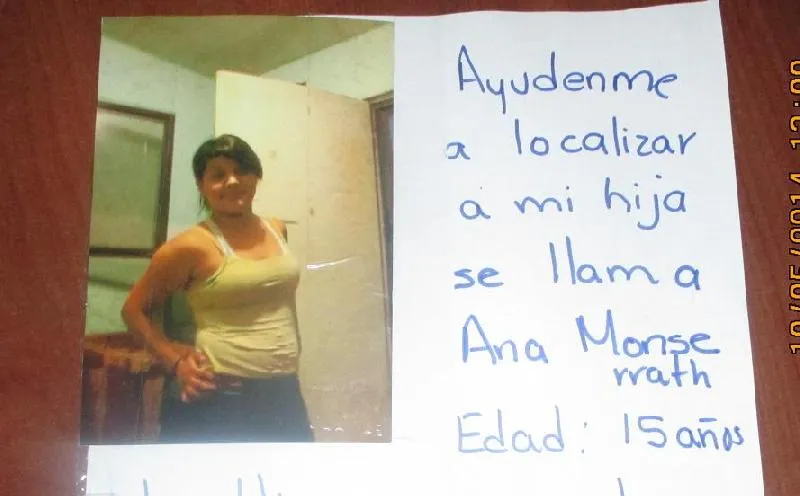 Ayudenme
a localizar
a mi hija
se llama
Ana Monse
rrath
Edad: 15 años